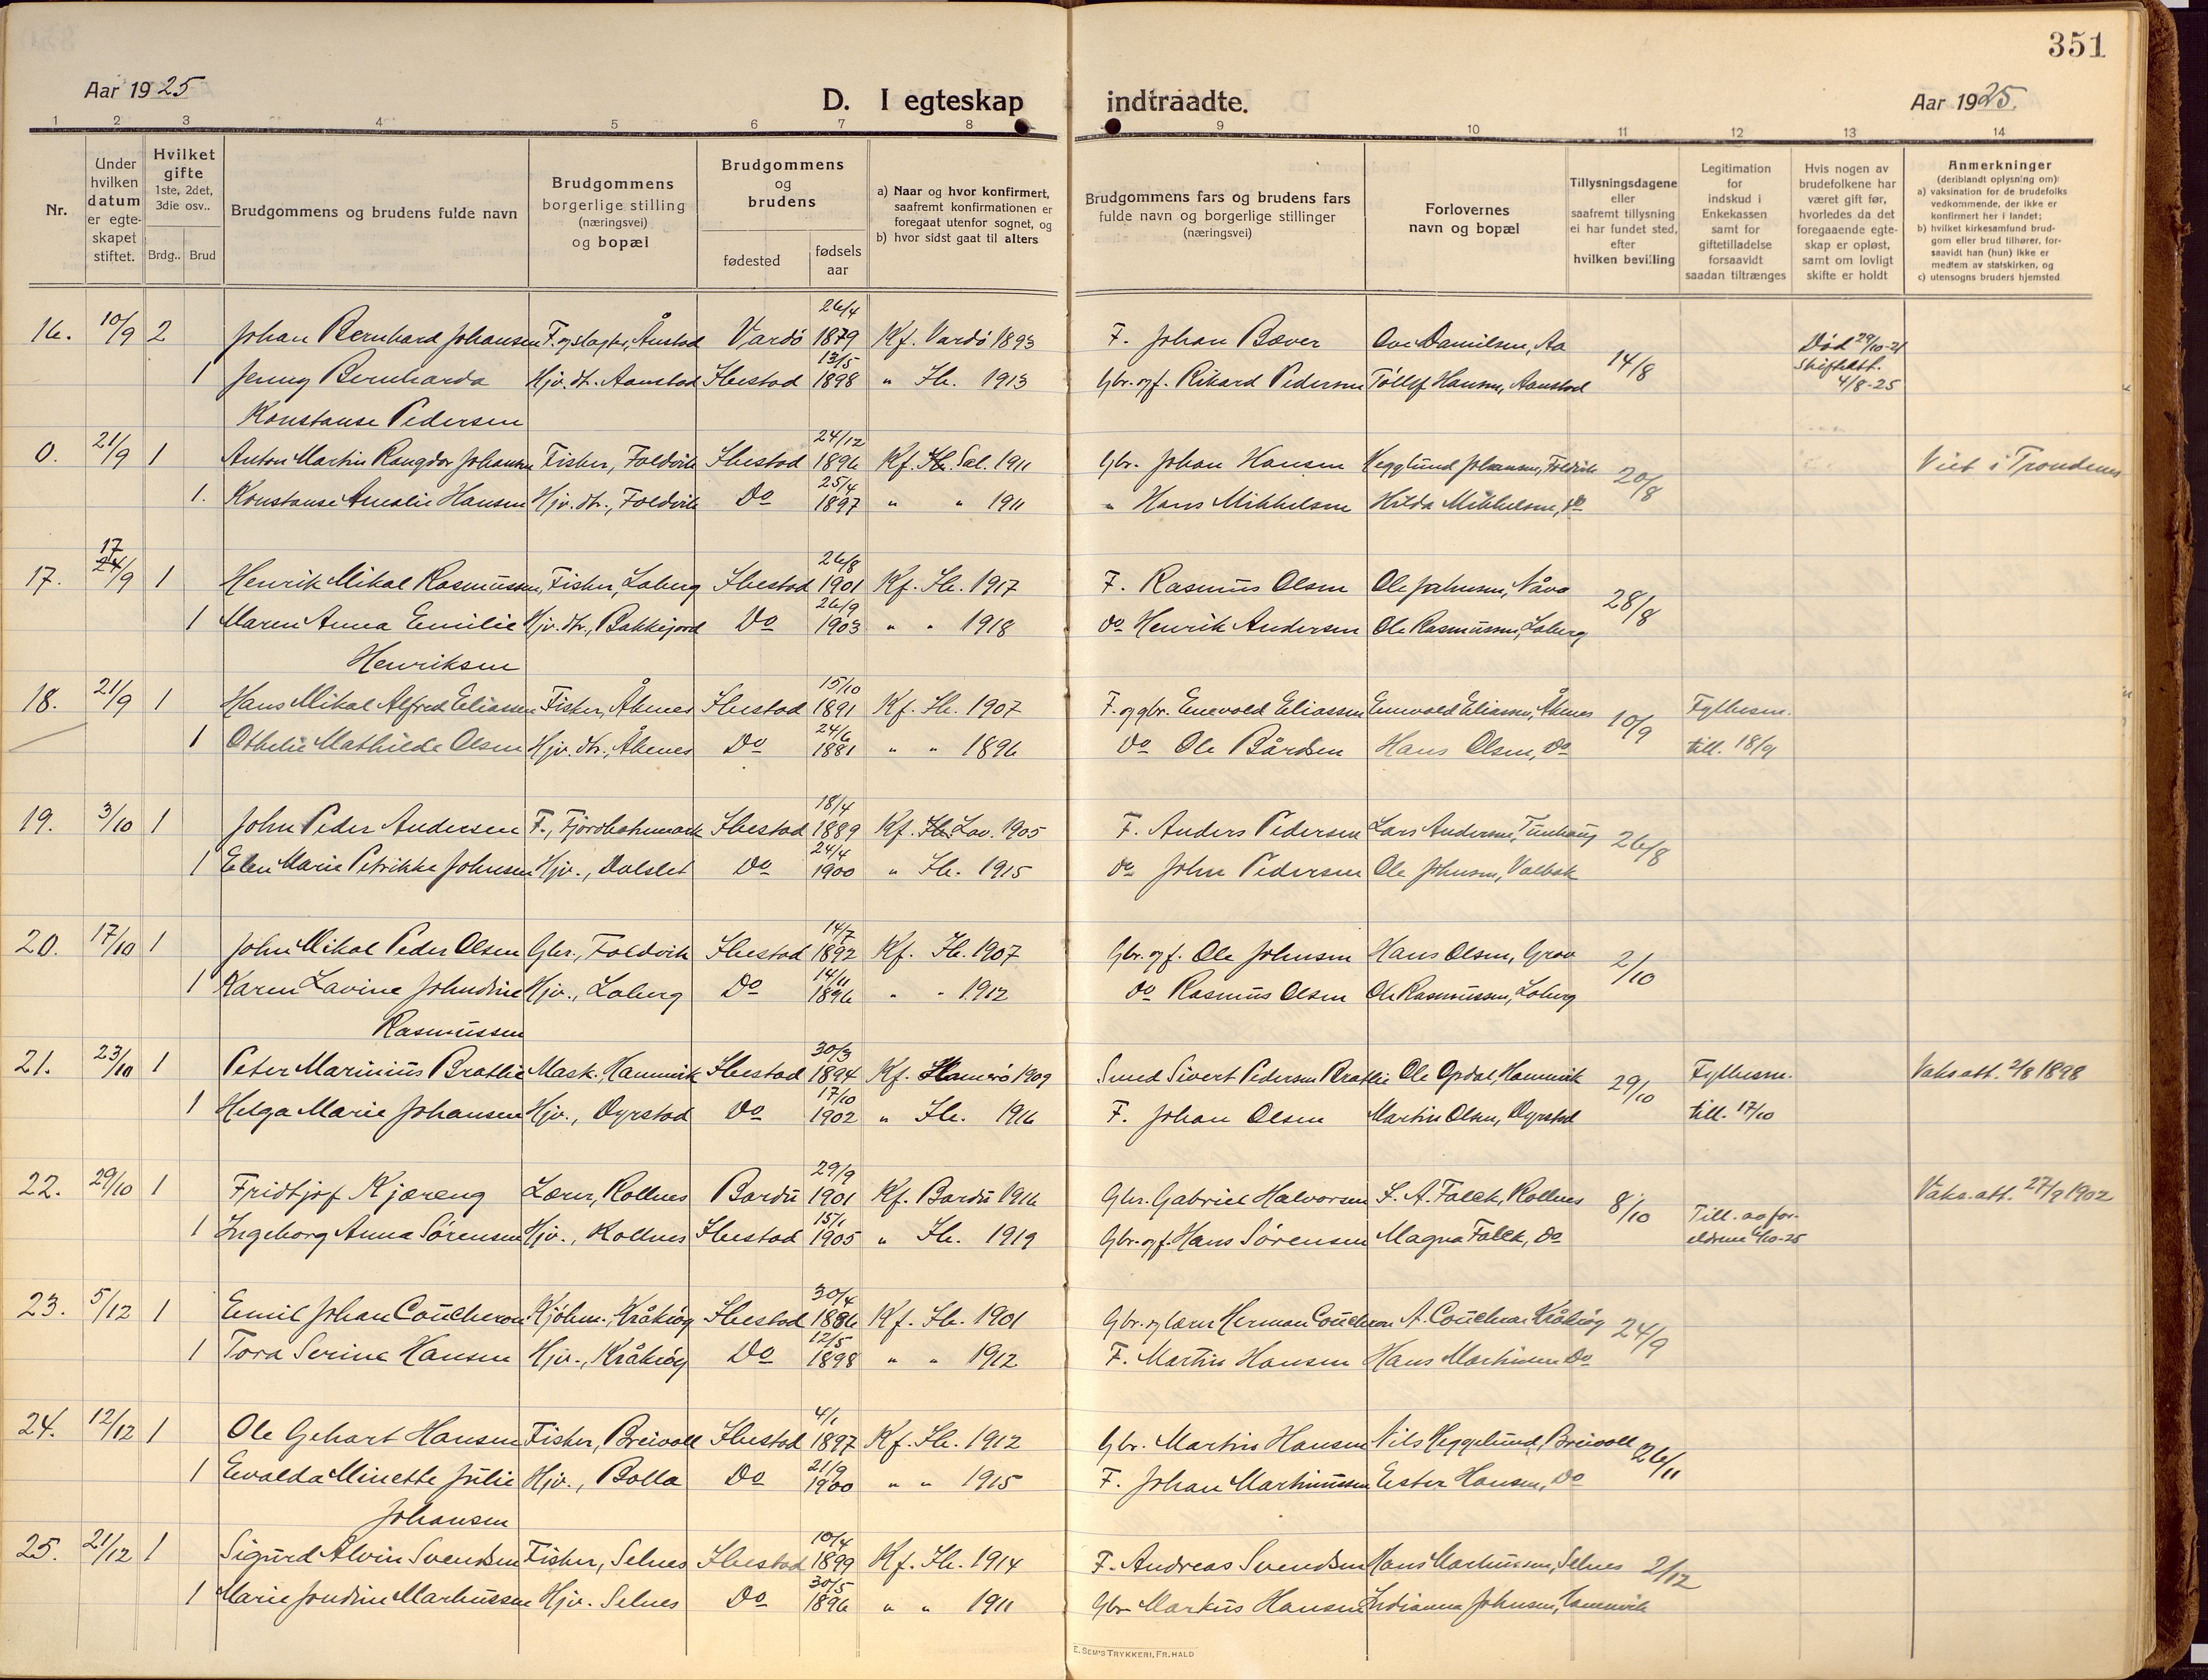 351
Aar 1925
D. I egteskap indtraadte.
Aar 1925.
1 2 3 4 5 6 7 8 9 10 11 12 13 14
Nr.
Under hvilken datum er egteskapet stiftet.
Hvilket gifte 1ste, 2det, 3die osv..
Brdg.. Brud
Brudgommens og brudens fulde navn
Brudgommens borgerlige stilling (næringsvei) og bopæl
Brudgommens og brudens
fødested
fødsels aar
a) Naar og hvor konfirmert, saafremt konfirmationen er foregaat utenfor sognet, og
b) hvor sidst gaat til alters
Brudgommens fars og brudens fars fulde navn og borgerlige stillinger (næringsvei)
Forlovernes navn og bopæl
Tillysningsdagene eller saafremt tillysning ei har fundet sted, efter hvilken bevilling
Legitimation for indskud i Enkekassen samt for giftetilladelse forsaavidt saadan tiltrænges
Hvis nogen av brudefolkene har været gift før, hvorledes da det foregaaende egteskap er opløst, samt om lovligt skifte er holdt
Anmerkninger
(deriblandt oplysning om):
a) vaksination for de brudefolks vedkommende, der ikke er konfirmert her i landet;
b) hvilket kirkesamfund brudgom eller brud tilhører, forsaavidt han (hun) ikke er medlem av statskirken, og
c) utensogns bruders hjemsted
16. 10/9 2 Johan Bernhard Johansen F. og slagter, Ånstad Vardö 26/4 1879 Kf. Vardö 1893 F. Johan Bæver Ove Danilsen, Aa 14/8 Død 29/10-21
1 Jenny Bernharda Hjv. dtr. Aanstad Ibestad 13/5 1898 " Ib. 1913 Gbr. og f. Rikard Pedersen Tollef Hansen, Aanstad Skifteatt. 4/8-25
Konstanse Pedersen
0. 21/9 1 Anton Martin Rangdor Johansen Fisker, Foldvik Ibestad 24/12 1896 Kf. Sal. 1911 Gbr. Johan Hansen Hegglund Johansen, Foldvik 20/8 Viet i Trondenes
1. Konstanse Amalie Hansen Hjv. dtr., Foldvik Do 25/4 1897 " " 1911 " Hans Mikkelsen Hilda Mikkelsen, do
17. 17/9 1 Henrik Mikal Rasmussen, Fisker, Loberg Ibestad 26/8 1901 Kf. Ib. 1917 F. Rasmus Olsen Ole Johnsen, 28/8
1 Maren Anna Emilie Hjv. dtr., Bakkejord Do 26/9 1903 " " 1918 do Henrik Andersen Ole Rasmussen, Loberg
Henriksen
18. 21/9 1 Hans Mikal Alfred Eliassen Fisker, Åknes Ibestad 15/10 1891 Kf. Ib. 1907 F. og gbr. Enevold Eliassen Enevold Eliassen, Åknes 10/9 Fylkesm.
1 Othelie Mathilde Olsen Hjv. dtr., Åknes Do 24/6 1881 " " 1896 Do Ole Bårdsen Hans Olsen, Do till. 18/9
19. 3/10 1 John Peder Andersen F., Fjordbotnmark Ibestad 18/4 1889 Kf. Lav. 1905 F. Anders Pedersen Lars Andersen, Tunhaug 26/8
1 Elen Marie Petrikke Johnsen Hjv., Dalslet Do 24/4 1900 " Ib. 1915 do John Pedersen Ole Johnsen, Valbak
20. 17/10 1 John Mikal Peder Olsen Gbr., Foldvik Ibestad 14/7 1892 Kf. Ib. 1907 Gbr. og f. Ole Johnsen Hans Olsen, Grov 2/10
1 Karen Lavine Johndine Hjv., Loberg Do 14/11 1896 " " 1912 do Rasmus Olsen Ole Rasmussen, Loberg
Rasmussen
21. 23/10 1 Peter Marinius Bratlie Mask., Hamnvik Ibestad 30/3 1894 Kf. Hamerö 1909 Smed Sivert Pedersen Bratlie Ole Opdal, Hamnvik 29/10 Fylkesm. Vaks att. 2/8 1898
1 Helga Marie Johansen Hjv., Dyrstad Do 17/10 1902 " Ib. 1916 F. Johan Olsen Martin Olsen, Dyrstad till. 17/10
22. 29/10 1 Fridtjof Kjæreng Lærer, Rollnes Bardu 29/9 1901 Kf. Bardu 1916 Gbr. Gabriel Halvorsen S. A. Falck, Rollnes 8/10 Vaks. att. 27/9 1902
1 Ingeborg Anna Sörensen Hjv., Rollnes Ibestad 15/1 1905 " Ib. 1919 Gbr. og f. Hans Sörensen Magna Falck, do Till. av foreldrene 6/10-25
23. 5/12 1 Emil Johan Coucheron Kjöbm., Kråkrög Ibestad 30/4 1886 Kf. Ib. 1901 Gbr. og lærer Herman Coucheron A. Coucheron Kråkrög 24/9
1 Tora Serine Hansen Hjv., Kråkrög Do 12/5 1898 " " 1912 F. Martin Hansen Hans Martinsen Do
24. 12/12 1 Ole Gehart Hansen Fisker, Breivoll Ibestad 4/1 1897 Kf. Ib. 1912 Gbr. Martin Hansen Nils Heggelund, Breivoll 26/11
1 Evalda Minette Julie Hjv., Bolla Do 21/9 1900 " " 1915 F. Johan Martinussen Ester Hansen, Do
Johansen
25. 21/12 1 Sigurd Alvin Svendsen Fisker, Selnes Ibestad 10/4 1899 Kf. Ib. 1914 F. Andreas Svendsen Hans Markussen, Selnes 2/12
1 Marie Jondine Markussen Hjv. Selnes Do 30/5 1896 " " 1911 Gbr Markus Hansen Indianna Johnsen, Hamnvik
E. SEM'S TRYKKERI, FR. HALD